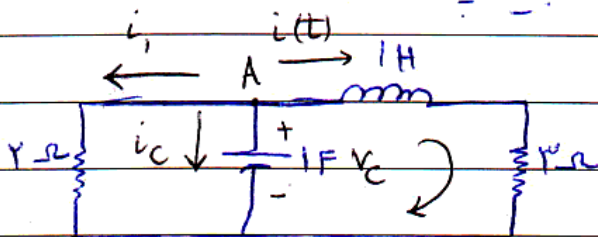 i₁ i(t)
A 1H
۲Ω i_C + 1F V_C ۳Ω
-